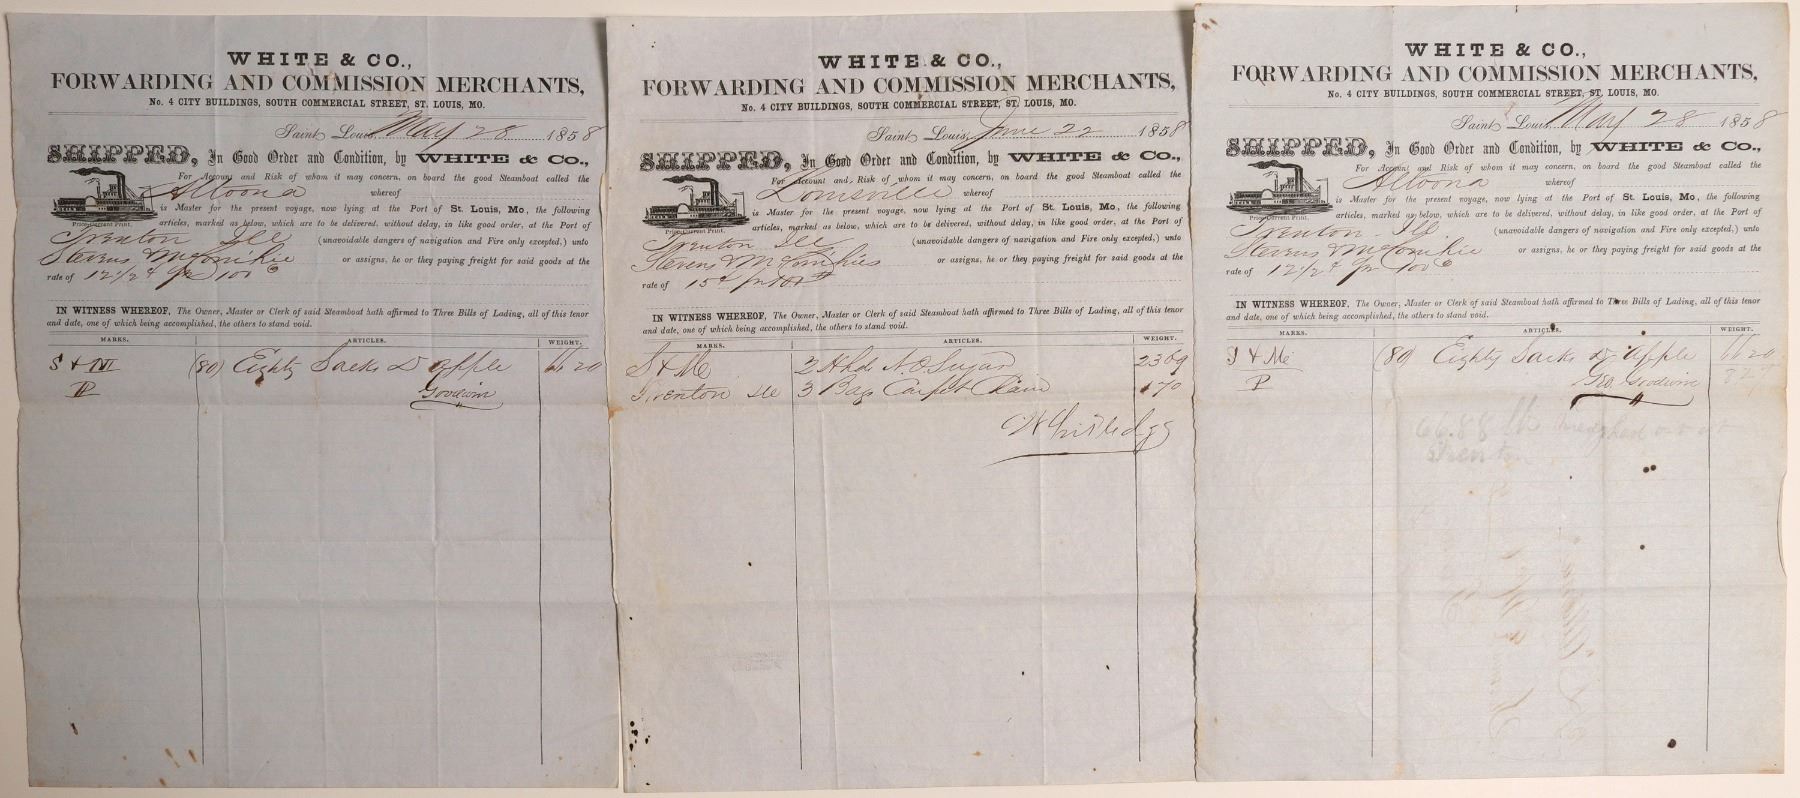 WHITE & CO.,
FORWARDING AND COMMISSION MERCHANTS,
No. 4 CITY BUILDINGS, SOUTH COMMERCIAL STREET, ST. LOUIS, MO.
Saint Louis, May 28 1858
SHIPPED, In Good Order and Condition, by WHITE & Co.,
For Account and Risk of whom it may concern, on board the good Steamboat called the
Altoona whereof
is Master for the present voyage, now lying at the Port of St. Louis, Mo., the following
articles, marked as below, which are to be delivered, without delay, in like good order, at the Port of
Price Current Print.
Trenton Ill (unavoidable dangers of navigation and Fire only excepted,) unto
Stevens & McConikie or assigns, he or they paying freight for said goods at the
rate of 12 1/2 ¢ pr 100
IN WITNESS WHEREOF, The Owner, Master or Clerk of said Steamboat hath affirmed to Three Bills of Lading, all of this tenor
and date, one of which being accomplished, the others to stand void.
MARKS. ARTICLES. WEIGHT.
S & M (80) Eighty Sacks D apple 6620
P Goodwin
WHITE & CO.,
FORWARDING AND COMMISSION MERCHANTS,
No. 4 CITY BUILDINGS, SOUTH COMMERCIAL STREET, ST. LOUIS, MO.
Saint Louis, June 22 1858
SHIPPED, In Good Order and Condition, by WHITE & Co.,
For Account and Risk of whom it may concern, on board the good Steamboat called the
Louisville whereof
is Master for the present voyage, now lying at the Port of St. Louis, Mo., the following
articles, marked as below, which are to be delivered, without delay, in like good order, at the Port of
Price Current Print.
Trenton Ill (unavoidable dangers of navigation and Fire only excepted,) unto
Stevens & McConikies or assigns, he or they paying freight for said goods at the
rate of 15¢ pr 100
IN WITNESS WHEREOF, The Owner, Master or Clerk of said Steamboat hath affirmed to Three Bills of Lading, all of this tenor
and date, one of which being accomplished, the others to stand void.
MARKS. ARTICLES. WEIGHT.
S & Mc 2 Hhd N.O. Sugar 2309
Trenton Ill 3 Bags Carpet Chain 170
WHITE & CO.,
FORWARDING AND COMMISSION MERCHANTS,
No. 4 CITY BUILDINGS, SOUTH COMMERCIAL STREET, ST. LOUIS, MO.
Saint Louis, May 28 1858
SHIPPED, In Good Order and Condition, by WHITE & Co.,
For Account and Risk of whom it may concern, on board the good Steamboat called the
Altoona whereof
is Master for the present voyage, now lying at the Port of St. Louis, Mo., the following
articles, marked as below, which are to be delivered, without delay, in like good order, at the Port of
Price Current Print.
Trenton Ill. (unavoidable dangers of navigation and Fire only excepted,) unto
Stevens & McConikie or assigns, he or they paying freight for said goods at the
rate of 12 1/2 ¢ pr 100
IN WITNESS WHEREOF, The Owner, Master or Clerk of said Steamboat hath affirmed to Three Bills of Lading, all of this tenor
and date, one of which being accomplished, the others to stand void.
MARKS. ARTICLES. WEIGHT.
S & Mc (80) Eighty Sacks D. Apple 6620
P Geo. Goodwin
6688 lb
Trenton